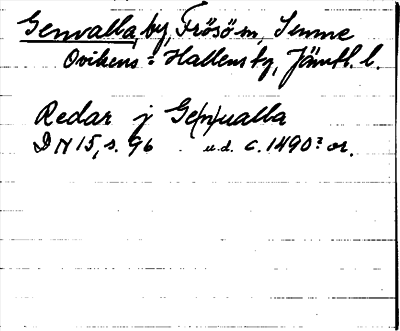 Genvalla, by, Frösö sn, Sunne
Ovikens o Hallens tg, Jämtl. l.
Redar j Ge(n)ualla
DN 15, s. 96 u.d. c. 1490? or.